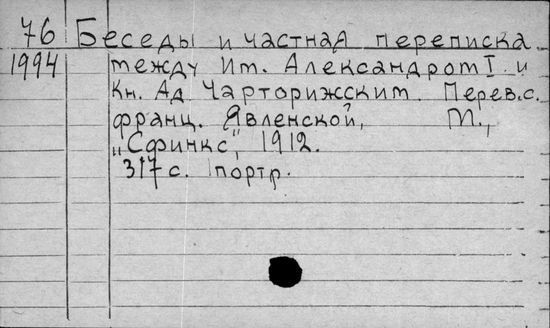 76 Беседы и частная переписка
1994 между Им. Александром I и
Кн. Ад Чарторижским. Перев. с.
франц. Явленской, М.,
„Сфинкс", 1912.
317 с. 1 портр.